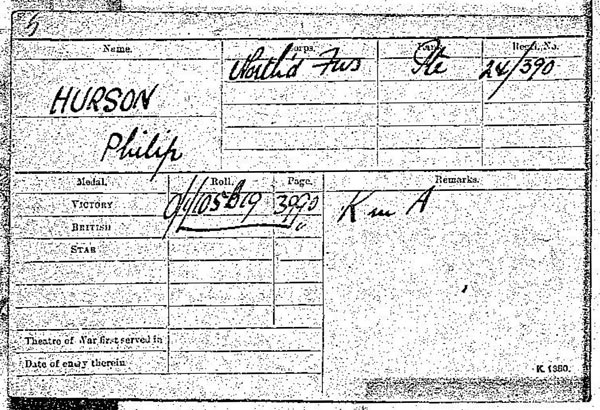 Name. Corps. Rank. Regtl. No.
North'd Fus Pte 24/390
HURSON
Philip
Medal. Roll. Page. Remarks.
VICTORY O/1/105B19 3990 K in A
BRITISH
STAR
Theatre of War first served in
Date of entry therein
K. 1380.